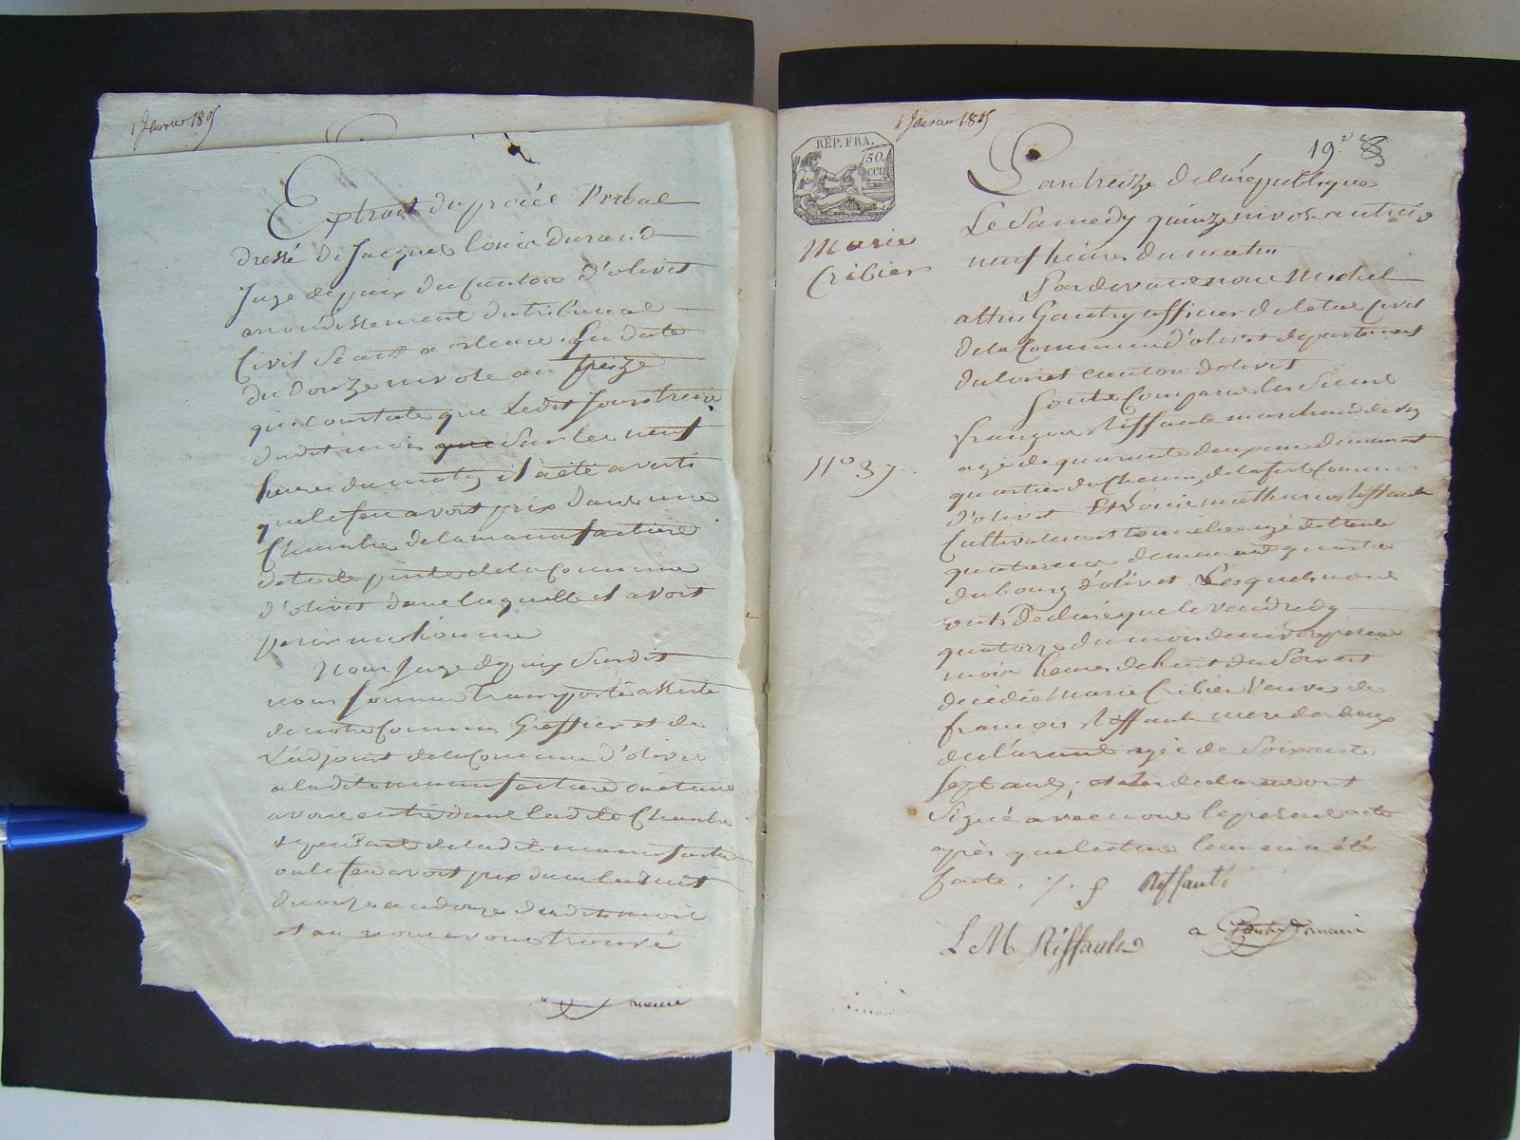 1 février 1805
Extrait du procès Verbal
dressé de Jacques louis durand
Juge de paix du Canton d'olivet
arrondissement du tribunal
Civil séant a orleans. En date
du douze nivose an treize
qui constate que ledit Jour treize
dudit mois que sur les neuf
heures du matin il a été averti
que le feu avoit pris dans une
Chambre de la manufacture
de toile peinte de la Commune
d'olivet dans laquelle il avoit
peri un homme
Nous Juge de paix Susdit
nous sommes transporté assisté
de notre Commis Greffier et de
L'adjoint de la Commune d'olivet
a ladite manufacture ou étant
avons entré dans ladite Chambre
dépendante de ladite manufacture
ou le feu avoit pris dans la nuit
du onze au douze dudit mois
et ou nous avons trouvé
maire
1 février 1805
19.e
RÉP. FRA.
50.
CEN
L'an treize de la république
Le Samedy quinze nivose
neuf heures du matin
Marie
Cribier
Pardevant nous Michel
Gautry officier de l'état Civil
de la Commune d'olivet departement
du loiret canton d'olivet
Sont Comparu les Sieurs
françois Riffault marchand
agé de quarante deux ans demeurant
N° 37
quartier du Chemin de la ferté Commune
d'olivet Et Louis mathurin Riffault
Cultivateur et tonnelier agé de trente
quatre ans demeurant quartier
du bourg d'olivet Lesquels nous
ont Declaré que le vendredy
quatorze du mois de nivose present
mois heure de huit du Soir est
decédée Marie Cribier Veuve de
françois Riffault mere des deux
declarants agée de Soixante
Sept ans; et les declarants ont
Signé avec nous le present acte
après que lecture leur en a été
faite. /. f Riffault
L M Riffault
a Gautry maire